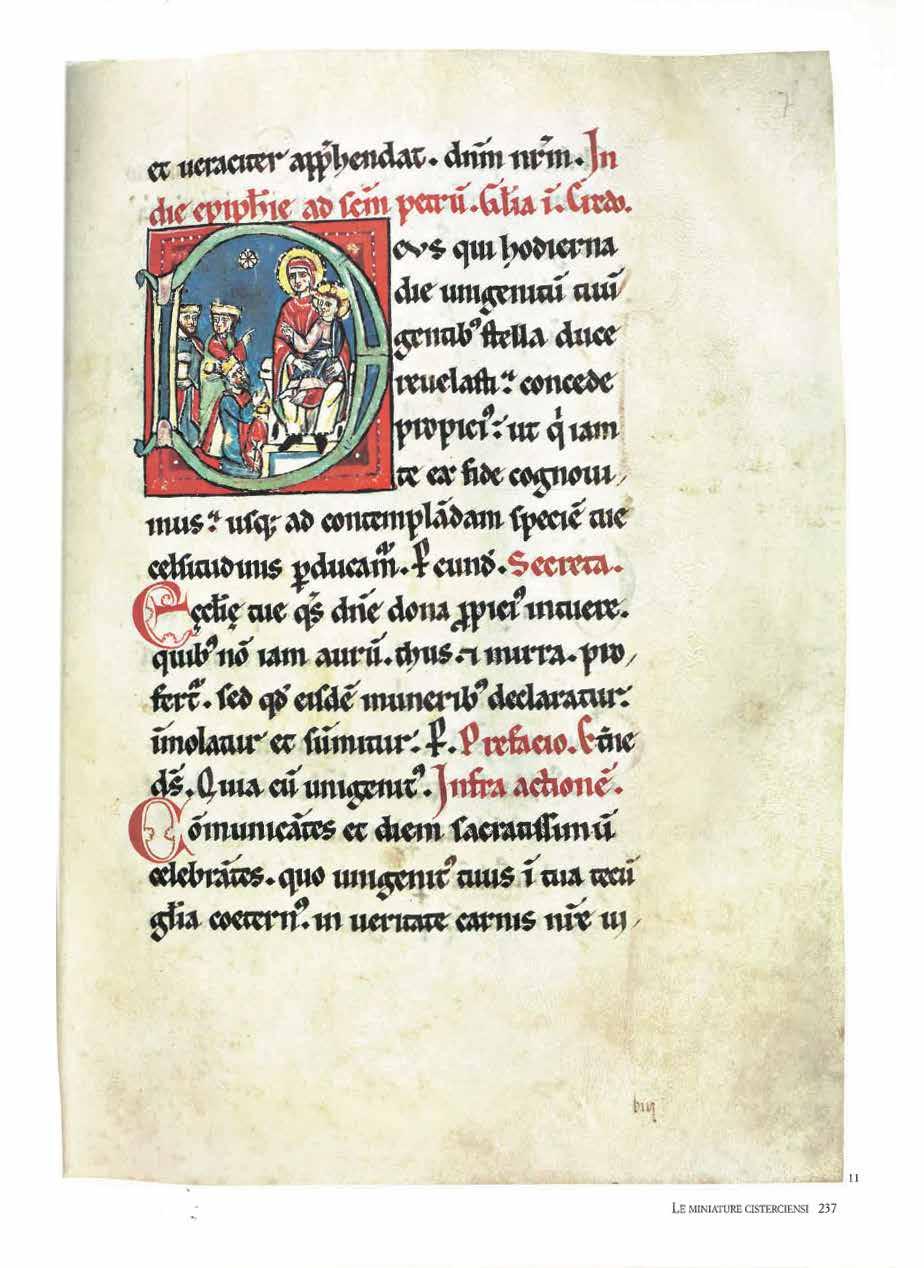 7
et ueraciter app̄hendat. dn̄m nr̄m. In
die epiph̄ie ad scm̄ petrū. Gl̄ia ī. Credo.
evs qui hodierna
die unigenitū tuū
gentib⁹ stella duce
reuelasti: concede
propici⁹: ut q̇ iam
te ex fide cognoui/
mus: usq; ad contemplādam speciē tue
celsitudinis ꝑducam̄. P̄ eund̄. Secreta.
Ecclīę tue qs̄ dn̄e dona ꝓpici⁹ intuere.
quib⁹ nō iam aurū. thus. ⁊ mirra. pro/
fert̄. sed qd̄ eisdē munerib⁹ declaratur:
īmolatur et sūmitur: P̄. Prefacio. Et̄ne
ds̄. Quia cū unigenit⁹. Infra actionē.
Cōmunicātes et diem sacratissimū
celebrātes. quo unigenit⁹ tuus ī tua tecū
gl̄ia coetern⁹. in ueritate carnis nr̄e ui/
11
LE MINIATURE CISTERCIENSI 237